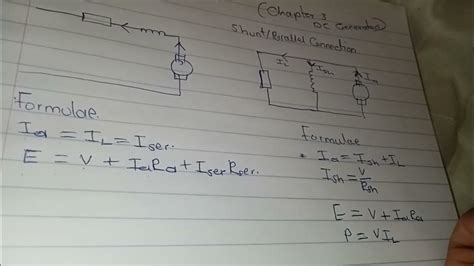 (Chapter 3
DC Generator)
Shunt/Parallel Connection
I_L
I_sh
I_a
Formulae
I_a = I_L = I_ser.
E = V + I_aR_a + I_serR_ser.
Formulae
I_a = I_sh + I_L
I_sh = V/R_sh
E = V + I_aR_a
P = VI_L